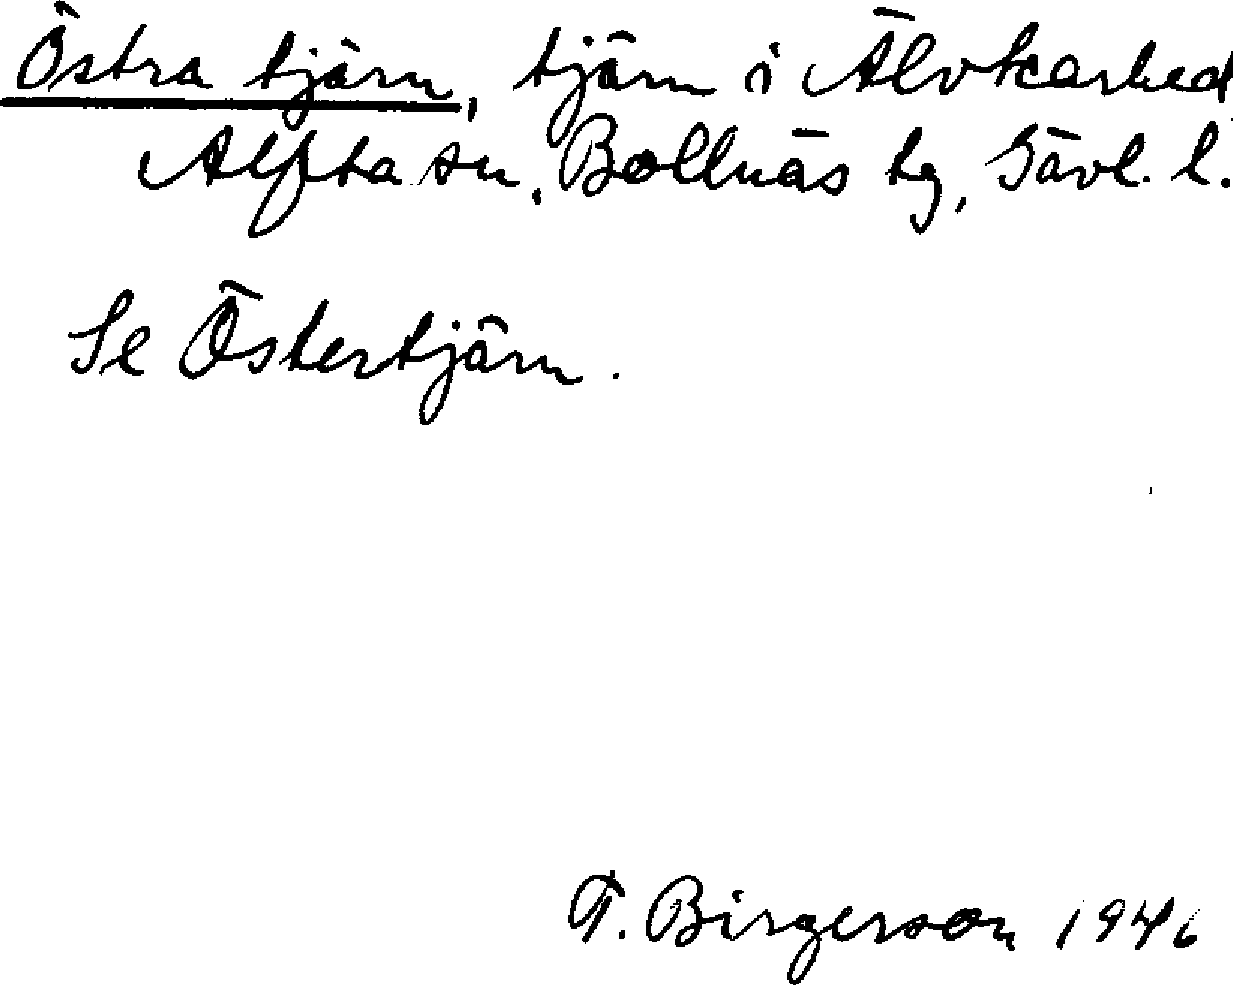 Östra tjärn, tjärn i Älvkarhed
Alfta sn, Bollnäs tg, Gävl. l.
Se Östertjärn.
T. Birgerson 1946